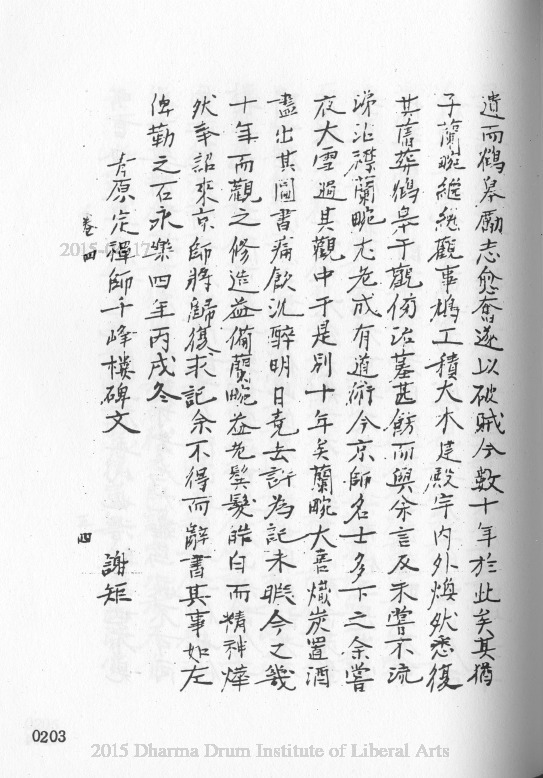 遺而鶴皋勵志愈奮遂以破賊今數十年於此矣其猶
子蘭畹継絶觀事鳩工積大木建殿宇内外煥然悉復
其舊葬鶴皋于觀傍治墓甚飭而與余言及未嘗不流
涕沾襟蘭畹尤老成有道術今京師名士多下之余嘗
夜大雪過其觀中于是別十年矣蘭畹大喜熾炭置酒
盡出其圖書痛飲沉醉明日竟去許為記未暇今又幾
十年而觀之修造益備蘭畹益老鬓髮皓白而精神燁
然奉詔來京師將歸復求記余不得而辭書其事如左
俾勒之石永樂四年丙戌冬
青原定禪師千峰樸碑文
謝矩
卷四
四
0203
2015-0 17
2015 Dharma Drum Institute of Liberal Arts